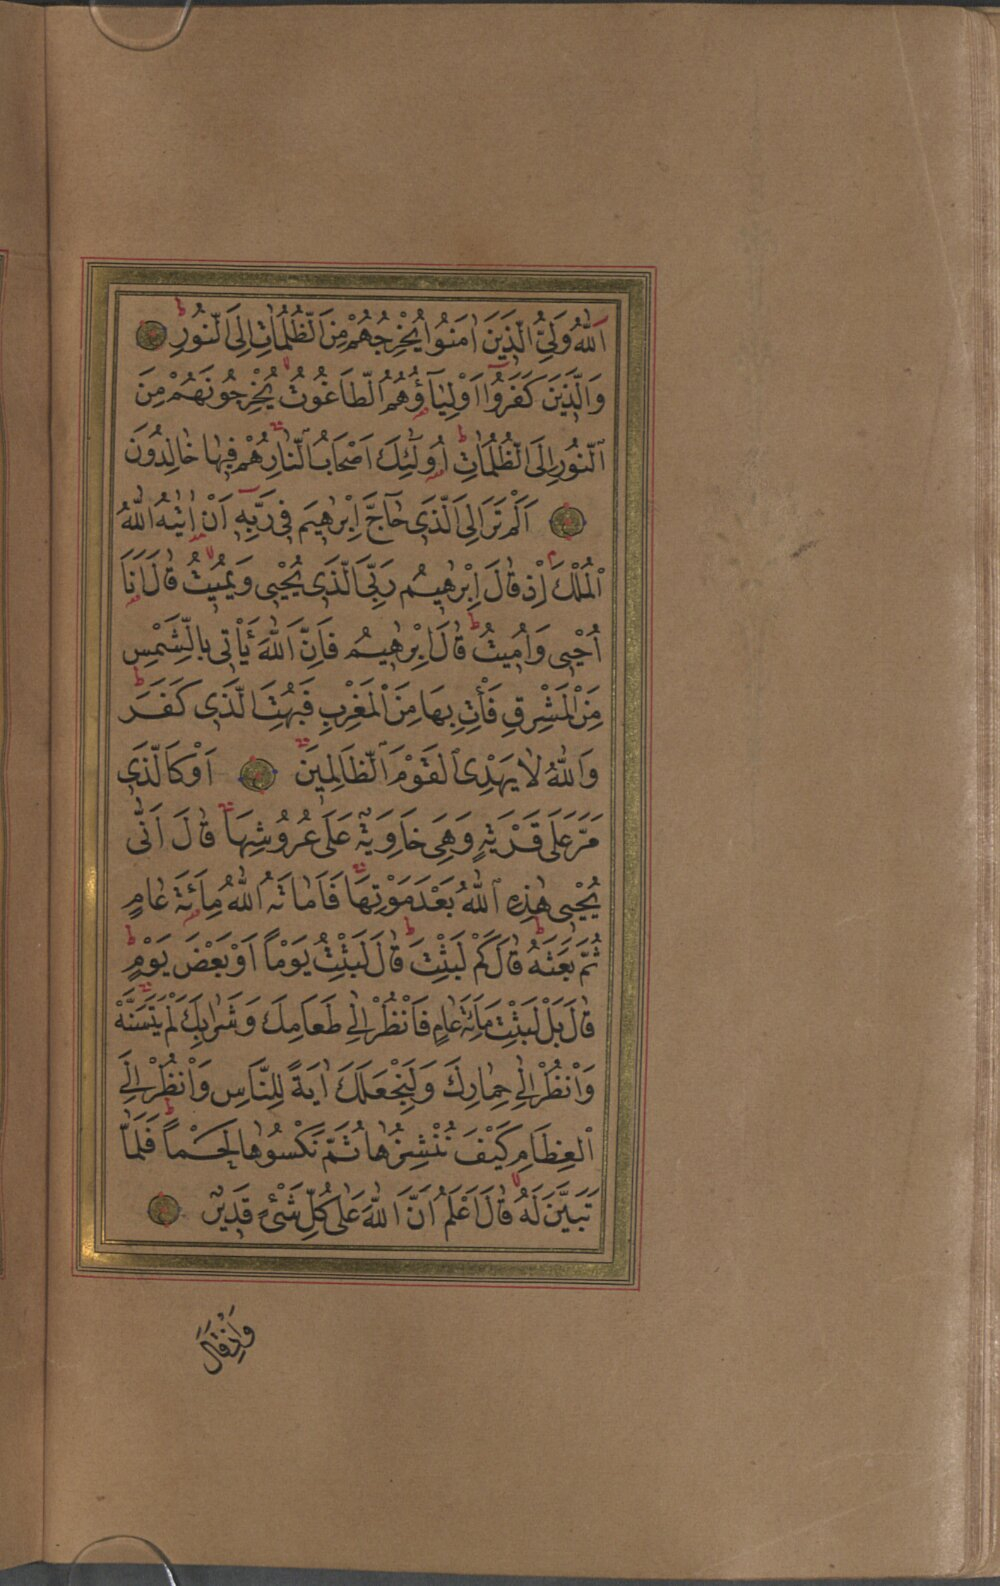 اَللّٰهُ وَلِيُّ الَّذٖينَ اٰمَنُوا يُخْرِجُهُمْ مِنَ الظُّلُمَاتِ اِلَى النُّورِ ط
وَالَّذٖينَ كَفَرُٓوا اَوْلِيَٓاؤُهُمُ الطَّاغُوتُ يُخْرِجُونَهُمْ مِنَ
النُّورِ اِلَى الظُّلُمَاتِ ط اُو۬لٰٓئِكَ اَصْحَابُ النَّارِ هُمْ فٖيهَا خَالِدُونَ
اَلَمْ تَرَ اِلَى الَّذٖى حَٓاجَّ اِبْرٰهٖيمَ فٖى رَبِّهٖٓ اَنْ اٰتٰيهُ اللّٰهُ
الْمُلْكَ اِذْ قَالَ اِبْرٰهٖيمُ رَبِّىَ الَّذٖى يُحْيٖى وَيُمٖيتُ قَالَ اَنَا
اُحْيٖى وَاُمٖيتُ ط قَالَ اِبْرٰهٖيمُ فَاِنَّ اللّٰهَ يَاْتٖى بِالشَّمْسِ
مِنَ الْمَشْرِقِ فَاْتِ بِهَا مِنَ الْمَغْرِبِ فَبُهِتَ الَّذٖى كَفَرَ ط
وَاللّٰهُ لَا يَهْدِى الْقَوْمَ الظَّالِمٖينَ اَوْ كَالَّذٖى
مَرَّ عَلٰى قَرْيَةٍ وَهِىَ خَاوِيَةٌ عَلٰى عُرُوشِهَا قَالَ اَنّٰى
يُحْيٖى هٰذِهِ اللّٰهُ بَعْدَ مَوْتِهَا فَاَمَاتَهُ اللّٰهُ مِائَةَ عَامٍ
ثُمَّ بَعَثَهُ ط قَالَ كَمْ لَبِثْتَ ط قَالَ لَبِثْتُ يَوْمًا اَوْ بَعْضَ يَوْمٍ ط
قَالَ بَلْ لَبِثْتَ مِائَةَ عَامٍ فَانْظُرْ اِلٰى طَعَامِكَ وَشَرَابِكَ لَمْ يَتَسَنَّهْ
وَانْظُرْ اِلٰى حِمَارِكَ وَلِنَجْعَلَكَ اٰيَةً لِلنَّاسِ وَانْظُرْ اِلَى
الْعِظَامِ كَيْفَ نُنْشِزُهَا ثُمَّ نَكْسُوهَا لَحْمًا ط فَلَمَّا
تَبَيَّنَ لَهُ قَالَ اَعْلَمُ اَنَّ اللّٰهَ عَلٰى كُلِّ شَىْءٍ قَدٖيرٌ
وَاِذْ قَالَ